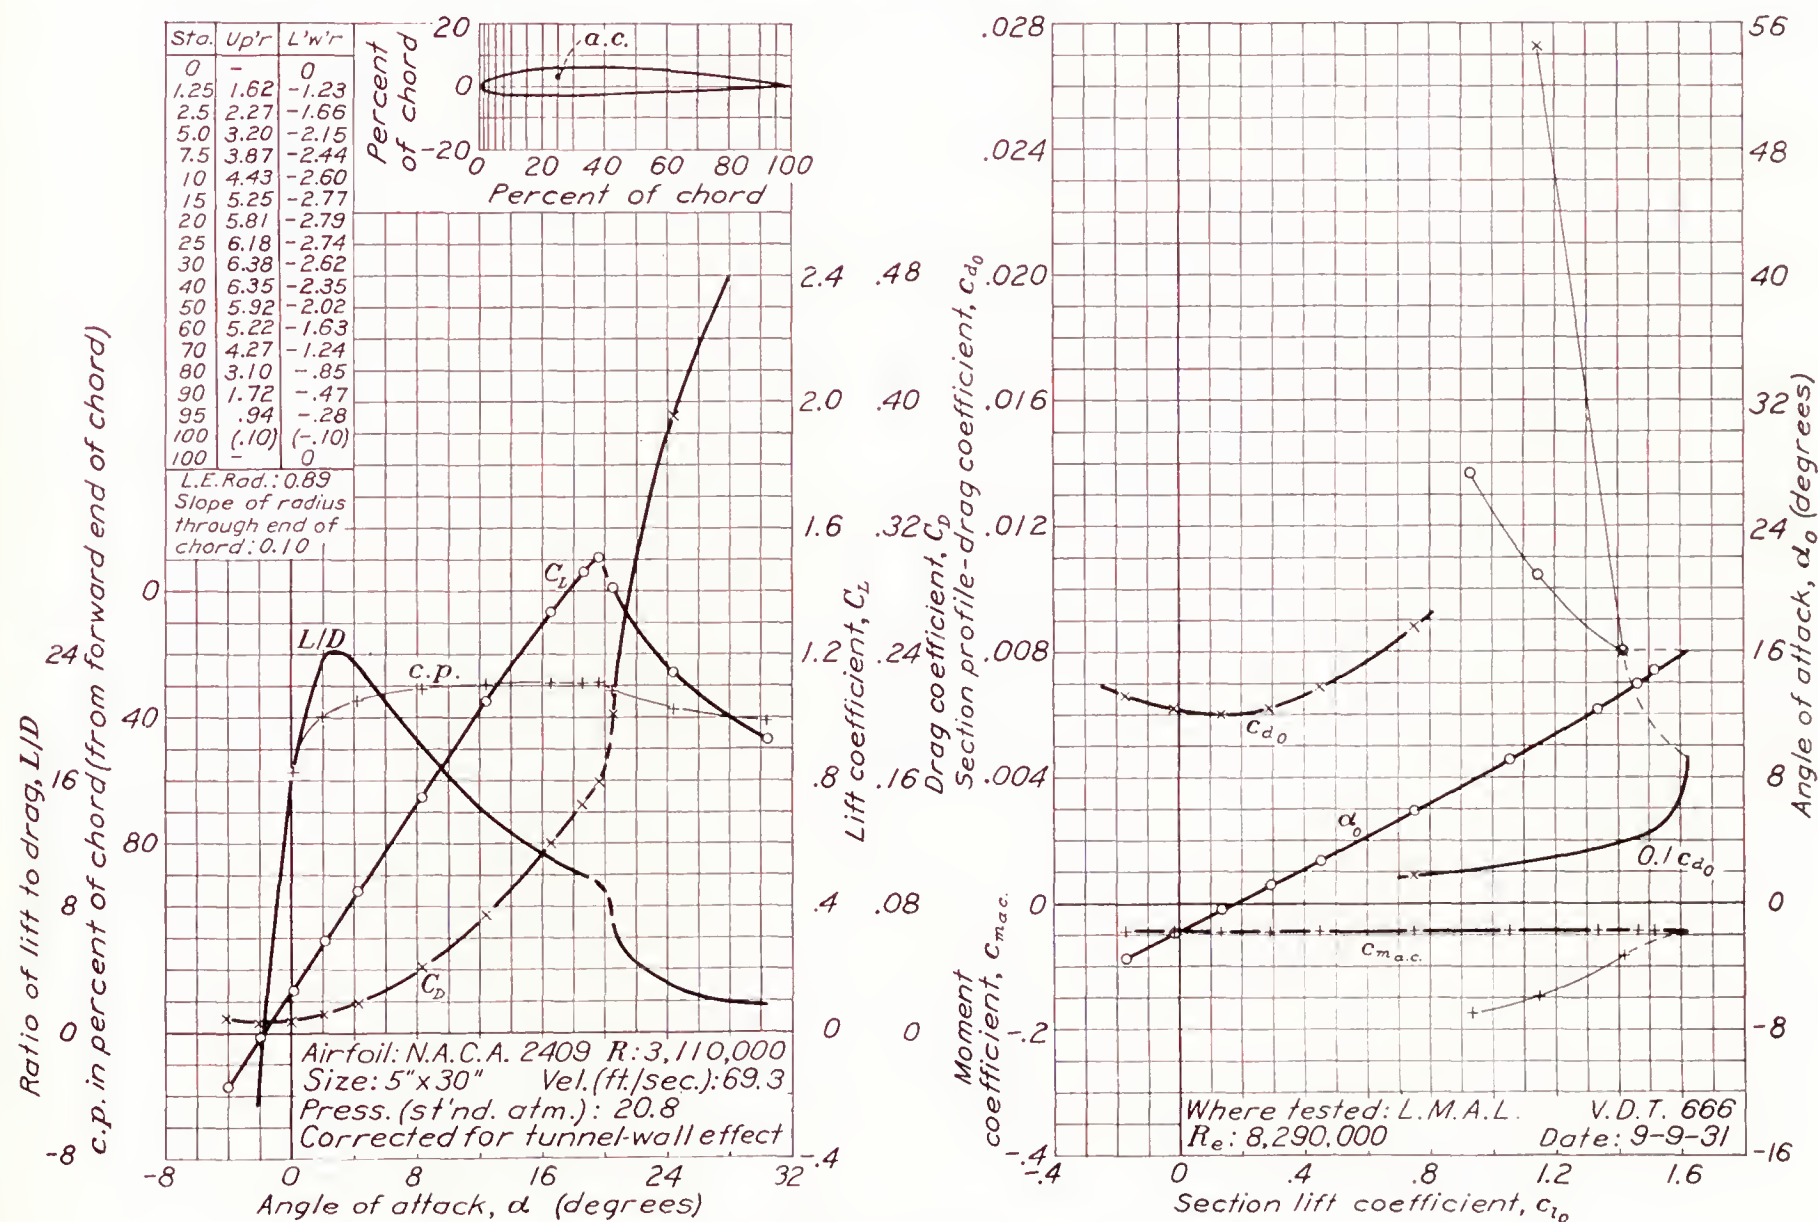 Sta. Up'r L'w'r
0 - 0
1.25 1.62 -1.23
2.5 2.27 -1.66
5.0 3.20 -2.15
7.5 3.87 -2.44
10 4.43 -2.60
15 5.25 -2.77
20 5.81 -2.79
25 6.18 -2.74
30 6.38 -2.62
40 6.35 -2.35
50 5.92 -2.02
60 5.22 -1.63
70 4.27 -1.24
80 3.10 -.85
90 1.72 -.47
95 .94 -.28
100 (.10) (-.10)
100 - 0
L.E. Rad.: 0.89
Slope of radius
through end of
chord: 0.10
Percent
of chord
20
0
-20
a.c.
0 20 40 60 80 100
Percent of chord
Ratio of lift to drag, L/D
24
16
8
0
-8
c.p. in percent of chord (from forward end of chord)
0
40
80
L/D
c.p.
C_L
C_D
2.4 .48
2.0 .40
1.6 .32
1.2 .24
.8 .16
.4 .08
0 0
-.4
Lift coefficient, C_L
Drag coefficient, C_D
Airfoil: N.A.C.A. 2409 R: 3,110,000
Size: 5"x30" Vel. (ft./sec.): 69.3
Press. (st'nd. atm.): 20.8
Corrected for tunnel-wall effect
-8 0 8 16 24 32
Angle of attack, α (degrees)
Section profile-drag coefficient, c_d0
.028
.024
.020
.016
.012
.008
.004
0
-.2
-.4
Moment
coefficient, c_ma.c.
c_d0
α_0
0.1 c_d0
c_ma.c.
56
48
40
32
24
16
8
0
-8
-16
Angle of attack, α_0 (degrees)
Where tested: L.M.A.L. V.D.T. 666
R_e: 8,290,000 Date: 9-9-31
-.4 0 .4 .8 1.2 1.6
Section lift coefficient, c_l0